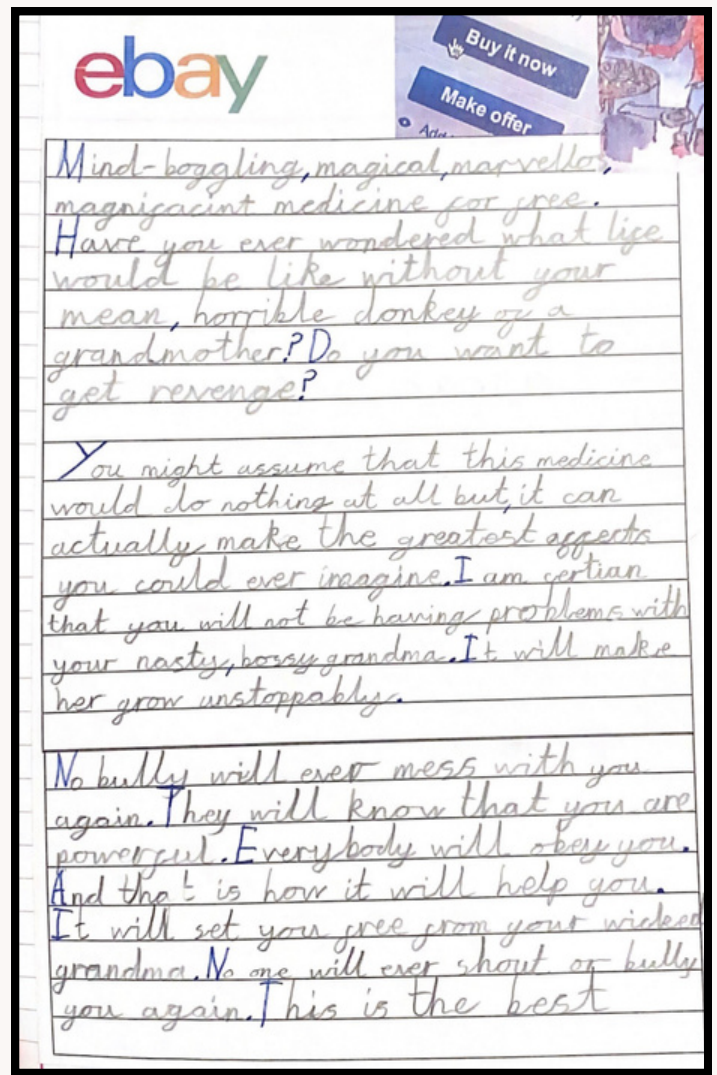 ebay
Buy it now
Make offer
Add
Mind-boggling, magical, marvellos,
magnifacint medicine for free.
Have you ever wondered what life
would be like without your
mean, horrible donkey of a
grandmother? Do you want to
get revenge?
You might assume that this medicine
would do nothing at all but, it can
actually make the greatest affects
you could ever imagine. I am certian
that you will not be having problems with
your nasty, bossy grandma. It will make
her grow unstoppably.
No bully will ever mess with you
again. They will know that you are
powerful. Everybody will obey you.
And that is how it will help you.
It will set you free from your wicked
grandma. No one will ever shout or bully
you again. This is the best